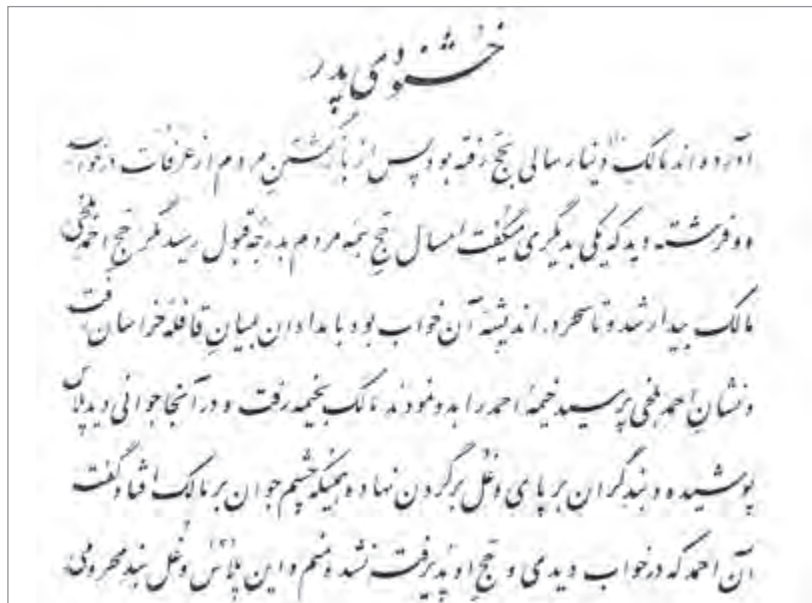 خشنودی پدر
آورده‌اند مالک دینار سالی بحج رفته بود پس از بازگشتن مردم از عرفات در خواب
دو فرشته دید که یکی بدیگری میگفت امسال حج همه مردم بدرجه قبول رسید مگر حج احمد بلخی
مالک بیدار شد و تا سحر در اندیشه آن خواب بود بامدادان بمیان قافله خراسان رفت
و نشان احمد بلخی پرسید خیمه احمد را بدو نمودند مالک بخیمه رفت و در آنجا جوانی دید پلاس
پوشیده و بند گران بر پای و غل برگردن نهاده همینکه چشم جوان بر مالک افتاد گفت
آن احمد که در خواب دیدی و حج او پذیرفته نشد منم و این پلاس و غل بند محرومی